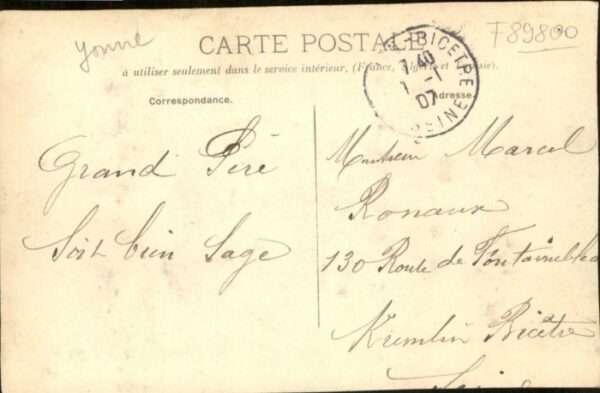 yonne
F89800
CARTE POSTALE
à utiliser seulement dans le service intérieur, (France, Algérie et Tunisie).
BICETRE
7 40
1 -1
07
SEINE
Correspondance.
Adresse.
Grand Père
Soit bien Sage
Monsieur Marcel
Ronaux
130 Route de Fontainebleau
Kremlin Bicêtre
Seine